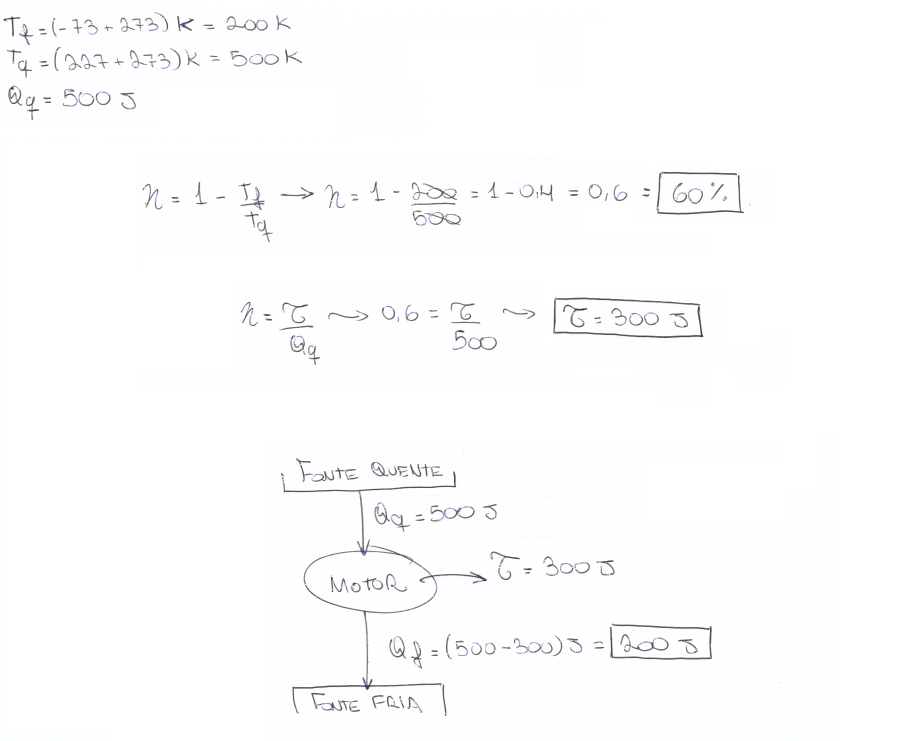 Tf = (-73 + 273) K = 200 K
Tq = (227 + 273) K = 500 K
Qq = 500 J
η = 1 - Tf/Tq → η = 1 - 200/500 = 1 - 0,4 = 0,6 = 60%
η = τ/Qq → 0,6 = τ/500 → τ = 300 J
FONTE QUENTE
Qq = 500 J
MOTOR → τ = 300 J
Qf = (500 - 300) J = 200 J
FONTE FRIA